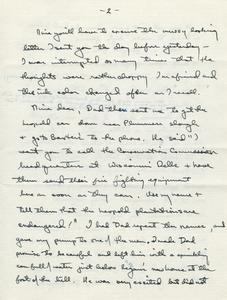 - 2 -
Nina you'll have to excuse the messy looking
letter I sent you the day before yesterday -
I was interrupted so many times - that the
thoughts were rather choppy
and
the ink color changed after as I recall.
Nina dear, Dad then sent me to get the
Leopold car down near Plummers slough
+ go to Baxters to the phone. He said "I
want you to call the Conservation Commission
headquarters at Wisconsin Dells + have
them send their fire fighting equipment
here as soon as they can. Use my name +
tell them that the Leopold plantations are
endangered!" I had Dad repeat the names, and
gave my pump to one of the men. I made Dad
promise to be careful and left him with a sprinkling
can full of water just below
foot of the hill. He was very excited but did not